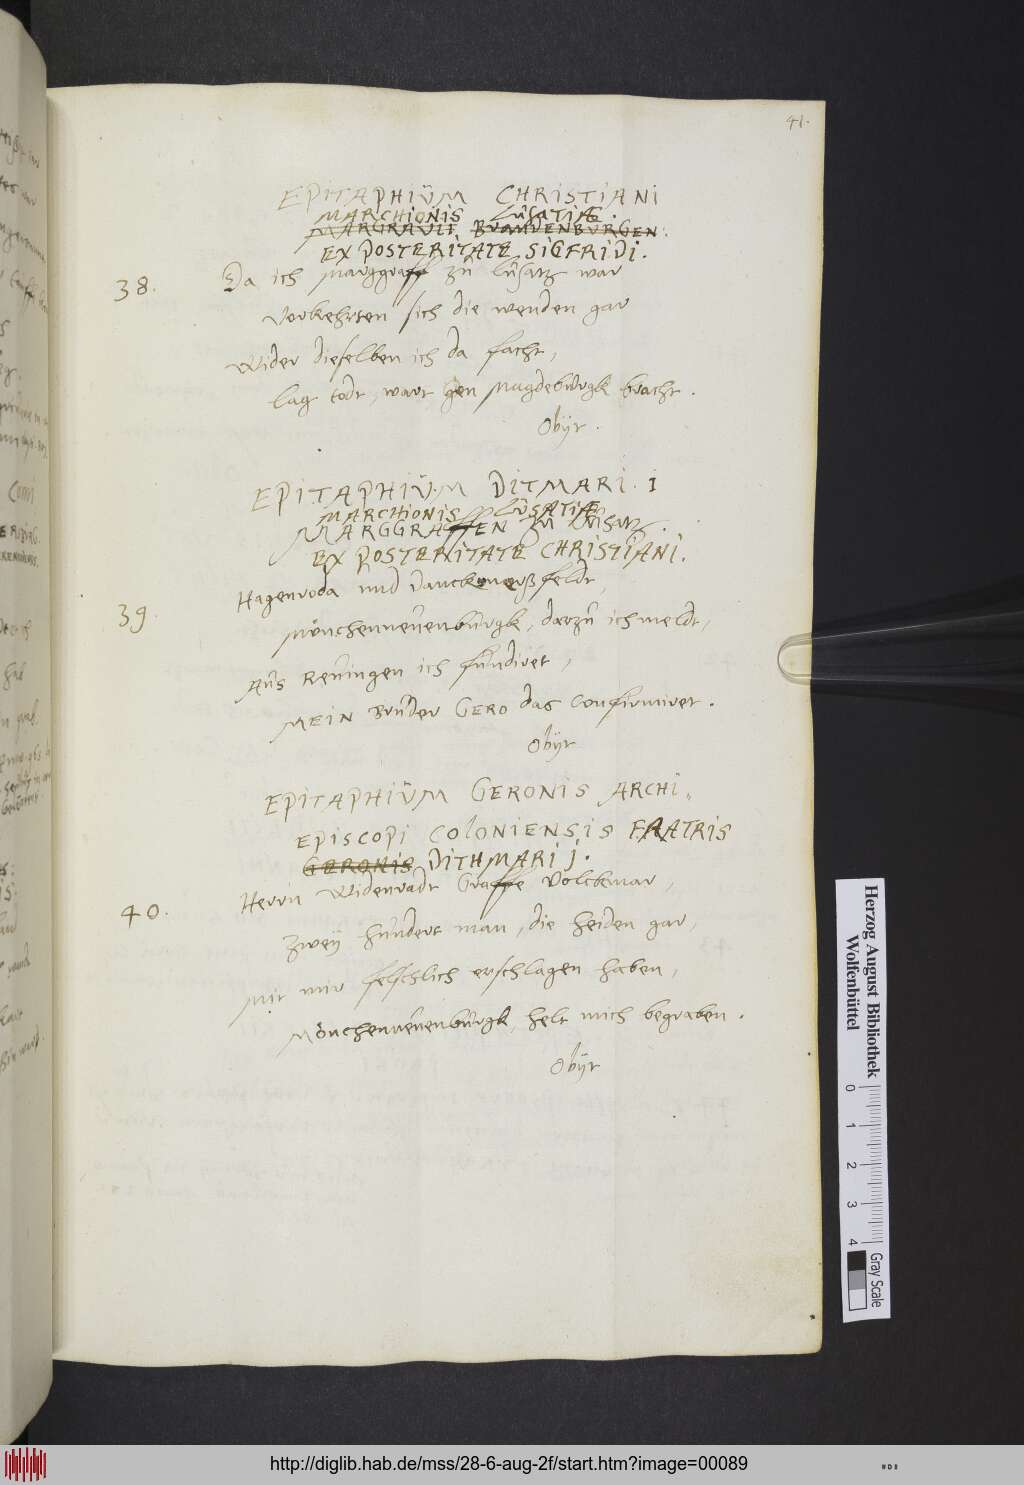 41.
EPITAPHIŬM CHRISTIANI
MARCHIONIS LŬSATIÆ.
MARGRAVII BRANDENBURGEN:
EX POSTERITATE SIGFRIDI.
38.
Da ich Marggraff zŭ Lŭsatz war
Vorkehrten sich die wenden gar
Wider dieselben ich da facht,
Lag todt, wart gen Magdebŭrgk bracht.
Obÿt.
EPITAPHIŬM DITMARI. I
MARCHIONIS LŬSATIÆ
MARGGRAFFEN zu Lŭsatz.
EX POSTERITATE CHRISTIANI.
39.
Hagenroda und Danckmerßfeldt,
Mönchenneŭenbŭrgk, darzŭ ich meldt,
Aŭs Reŭingen ich fŭndiret,
MEIN Brŭder GERO das Confirmiret.
Obÿt
EPITAPHIŬM GERONIS ARCHI,,
EPISCOPI COLONIENSIS FRATRIS
GERONIS DITHMARI j.
40.
Herrn Widenradt Graffe Volckmar,
Zweÿ hŭndert man, die heiden gar,
Mit mir felschlich erschlagen haben,
Mönchenneŭenbŭrgk, helt mich begraben.
Obÿt
Herzog August Bibliothek
Wolfenbüttel
0 1 2 3 4
Gray Scale
http://diglib.hab.de/mss/28-6-aug-2f/start.htm?image=00089